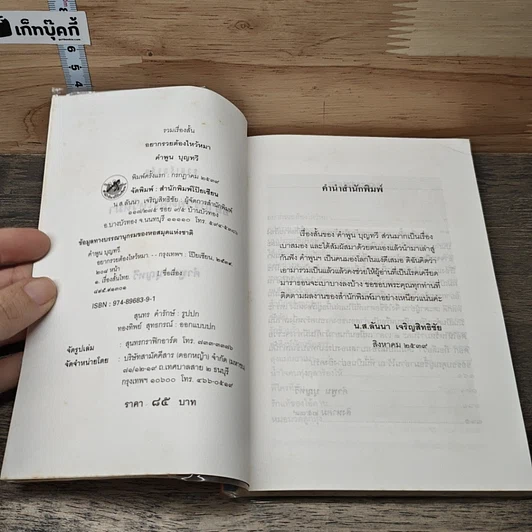 เก็ทบุ๊คกี้
8
6 5 4
รวมเรื่องสั้น
อยากรวยต้องไหว้หมา
คำพูน บุญทวี
พิมพ์ครั้งแรก : กรกฎาคม ๒๕๓๙
จัดพิมพ์ : สำนักพิมพ์โป๊ยเซียน
น.ส.ลันนา เจริญสิทธิชัย : ผู้จัดการสำนักพิมพ์
ซอย ๙/๕ บ้านบัวทอง
อ.บางบัวทอง จ.นนทบุรี ๑๑๑๑๐ โทร.
ข้อมูลทางบรรณานุกรมของหอสมุดแห่งชาติ
คำพูน บุญทวี
อยากรวยต้องไหว้หมา -- กรุงเทพฯ : โป๊ยเซียน, ๒๕๓๙
๒๐๘ หน้า
๑. เรื่องสั้นไทย ชื่อเรื่อง
ISBN : 974-89683-9-1
สุนทร คำรักษ์ : รูปปก
ทองทิพย์ สุทธกรณ์ : ออกแบบปก
จัดรูปเล่ม : สุนทรกราฟิกอาร์ต โทร.
จัดจำหน่ายโดย : บริษัทสามัคคีสาร (ดอกหญ้า) จำกัด
ถ.เทศบาลสาย ๒ ธนบุรี
กรุงเทพฯ ๑๐๖๐๐ โทร. ๔๖๖-๐๕๑๙
ราคา ๘๕ บาท
คำนำสำนักพิมพ์
เรื่องสั้นของ คำพูน บุญทวี ส่วนมากเป็นเรื่อง
เบาสมอง และได้สัมผัสมาด้วยตนเองแล้วนำมาเล่าสู่
กันฟัง คำพูนฯ เป็นคนมองโลกในแง่ดีเสมอ ดิฉันคิดว่า
เอามารวมเป็นเล่มแล้วคงช่วยให้ผู้อ่านที่เป็นโรคเครียด
มารายออนจะเบาบางลงบ้าง ขอขอบพระคุณทุกท่านที่
ติดตามผลงานของสำนักพิมพ์มาอย่างเหนียวแน่นค่ะ
น.ส.ลันนา เจริญสิทธิชัย
สิงหาคม ๒๕๓๙